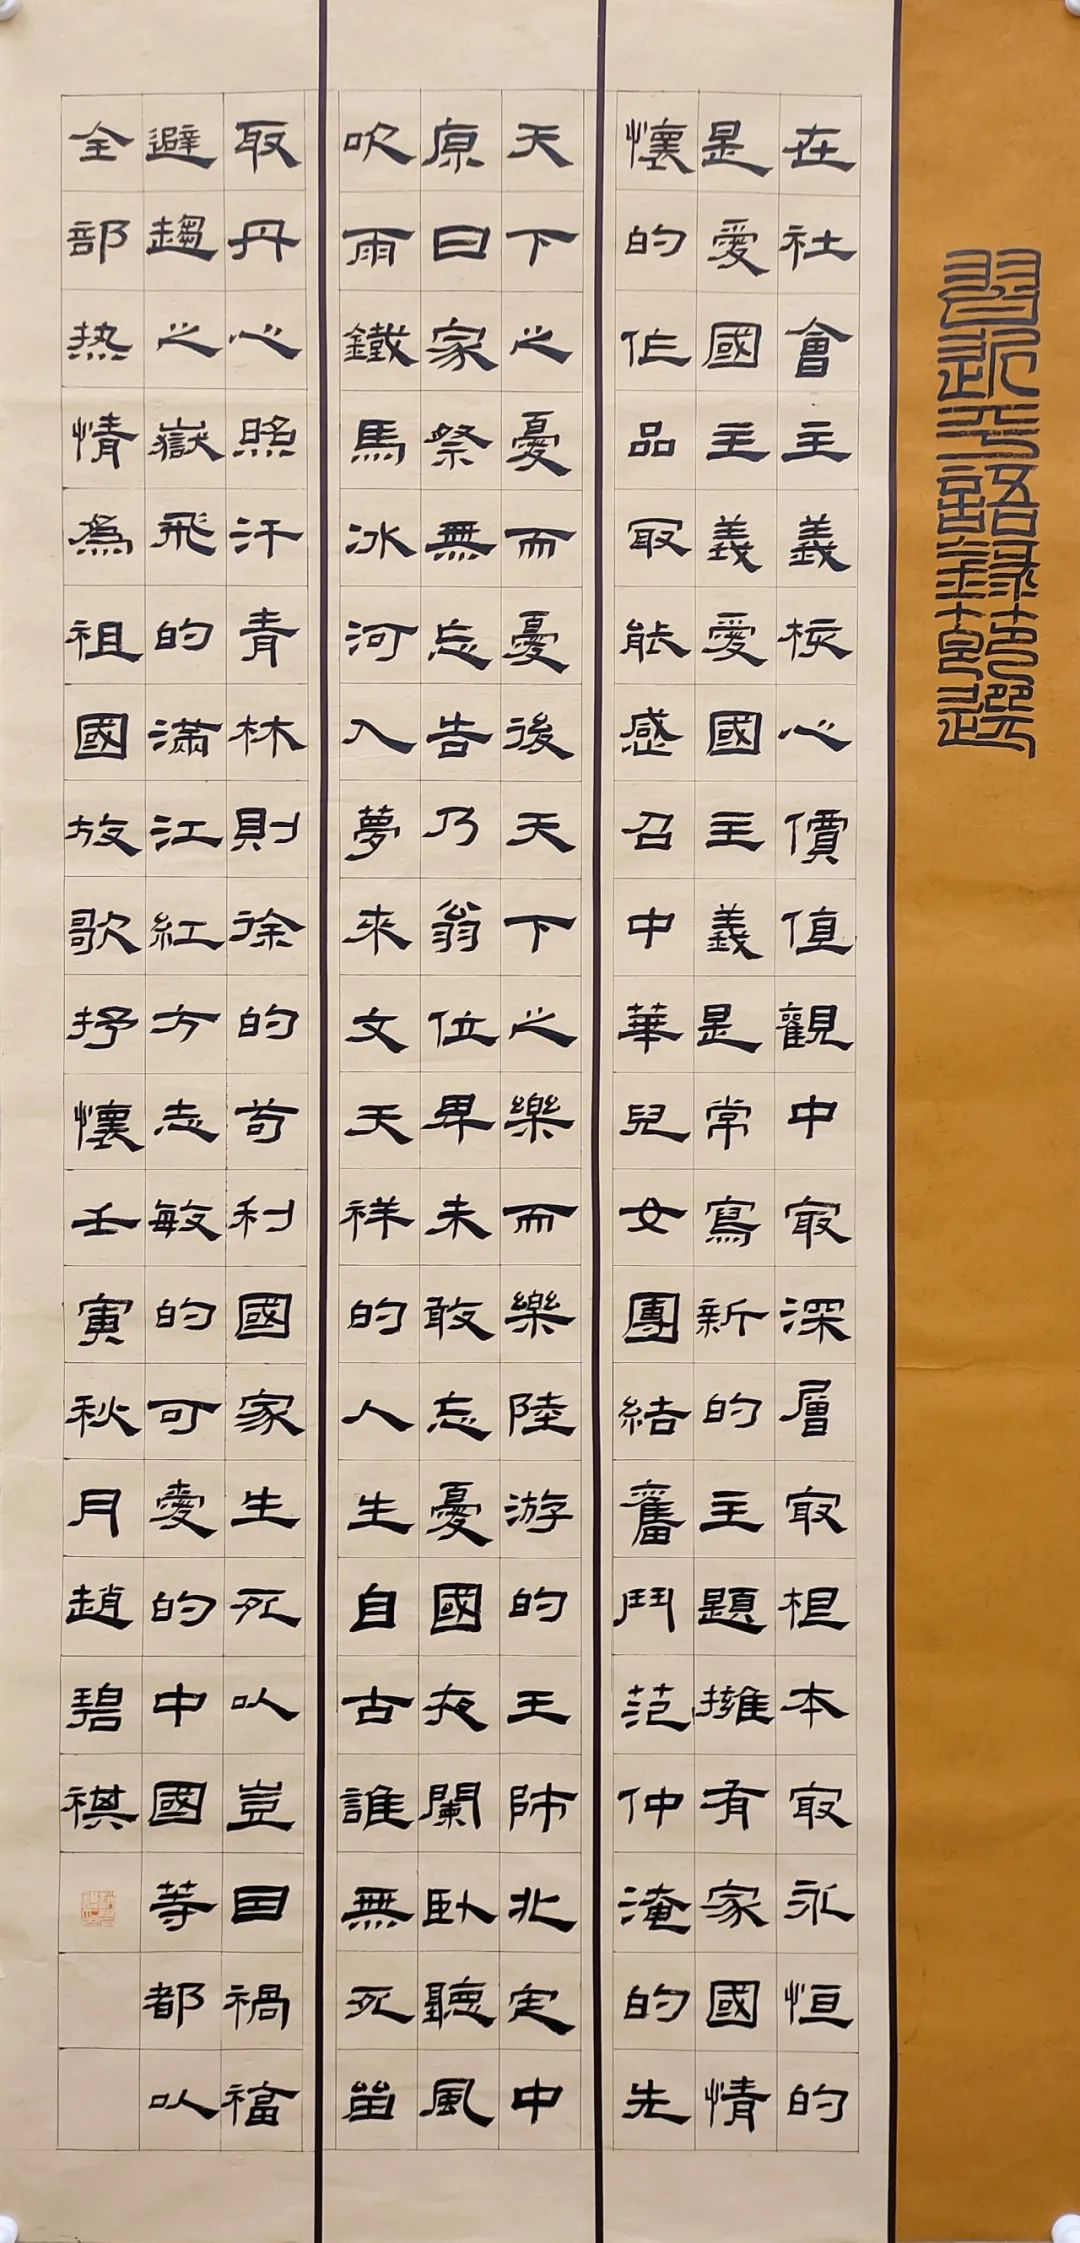 習近平語錄節選
在社會主義核心價值觀中最深層最根本最永恒的
是愛國主義愛國主義是常寫新的主題擁有家國情
懷的作品最能感召中華兒女團結奮鬥范仲淹的先
天下之憂而憂後天下之樂而樂陸游的王師北定中
原日家祭無忘告乃翁位卑未敢忘憂國夜闌臥聽風
吹雨鐵馬冰河入夢來文天祥的人生自古誰無死留
取丹心照汗青林則徐的苟利國家生死以豈因禍福
避趨之嶽飛的滿江紅方志敏的可愛的中國等都以
全部热情為祖國放歌抒懷壬寅秋月趙碧祺